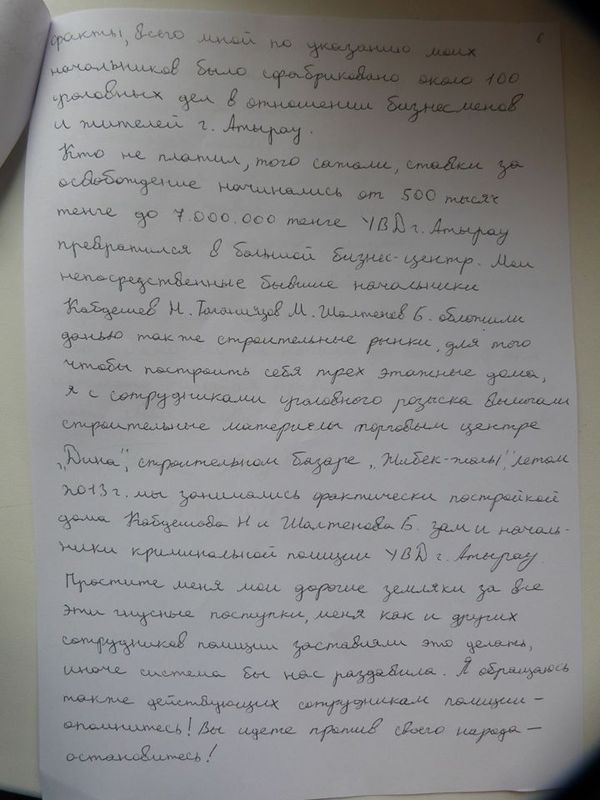 6
факты, всего мной по указанию моих
начальников было сфабриковано около 100
уголовных дел в отношении бизнесменов
и жителей г. Атырау.
Кто не платил, того сажали, ставки за
освобождение начинались от 500 тысяч
тенге до 7.000.000 тенге УВД г. Атырау
превратился в большой бизнес-центр. Мои
непосредственные бывшие начальники
Кабдешев Н. М. Шалтенов Б. обложили
данью также строительные рынки, для того
чтобы построить себя трех этажные дома,
я с сотрудниками уголовного розыска вымогали
строительные материалы торговым центре
„Дина“, строительном базаре „Жибек-жолы“, летом
2013 г. мы занимались фактически постройкой
дома Кабдешова Н и Шалтенова Б. зам и началь-
ники криминальной полиции УВД г. Атырау
Простите меня мои дорогие земляки за все
эти гнусные поступки, меня как и других
сотрудников полиции заставляли это делать,
иначе система бы нас раздавила. Я обращаюсь
также действующих сотрудникам полиции –
опомнитесь! Вы идете против своего народа –
остановитесь!